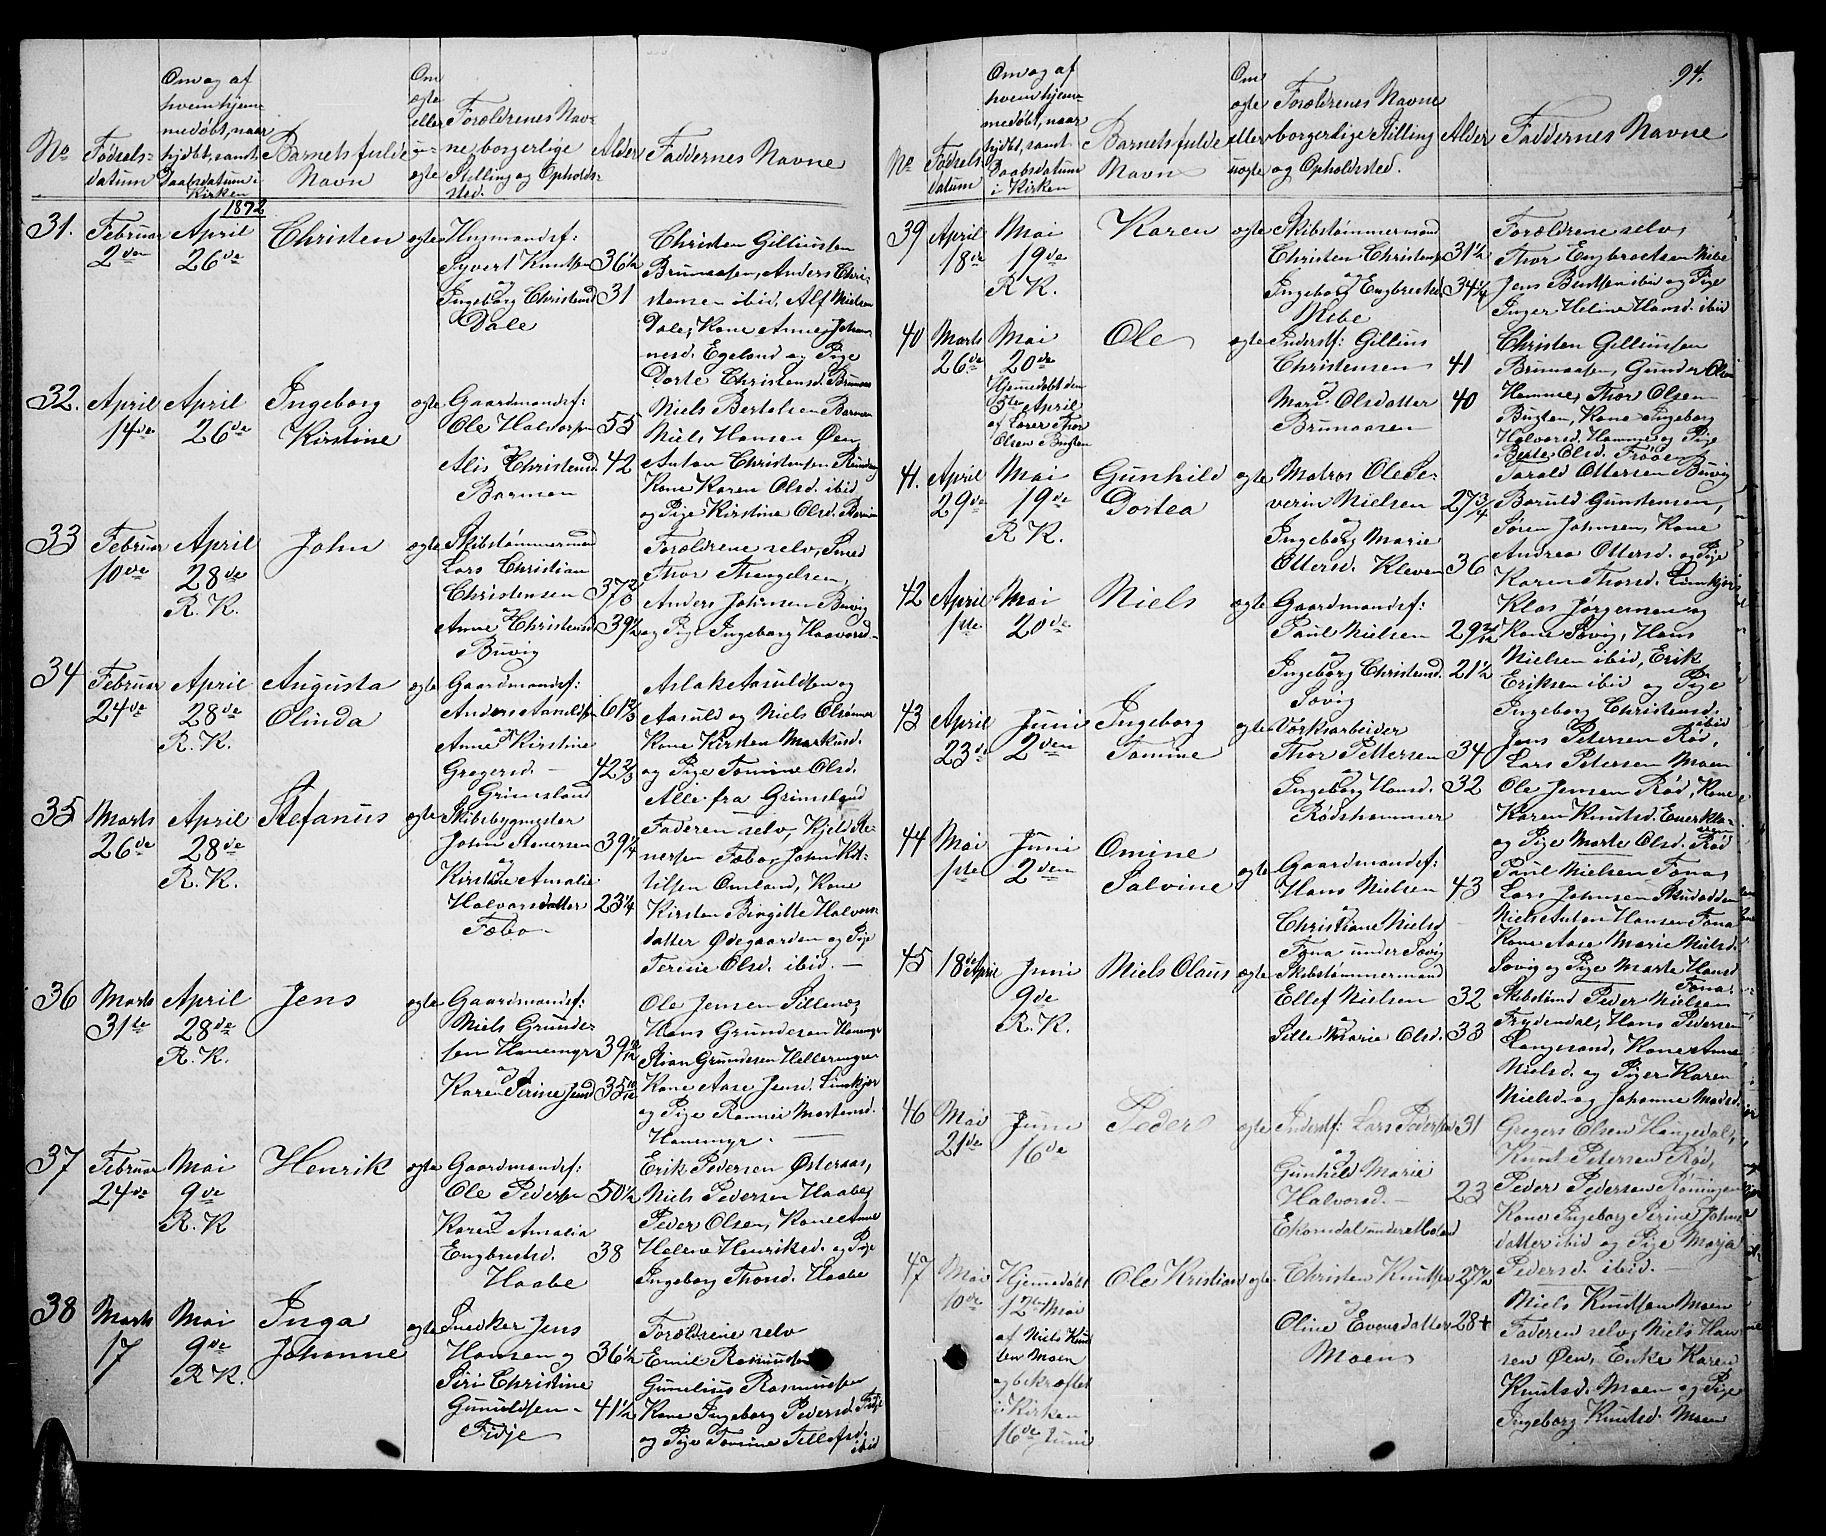 No
Fødsels-
datum
Om og af
hvem hjem-
medøbt, naar
hjdbt, samt
Daabsdatum i
Kirken
Barnets fulde
Navn
Om
ægte
eller
u-
ægte
Forældrenes Nav-
ne, borgerlige
Stilling og Opholds-
sted.
Alder
Faddernes Navne
1872
31.
Februar
2den
April
26de
Christen
ægte
Husmandsf:
Syvert Knutsen
og
Ingeborg Christensd
Dale
36½
31
Christen Gilliussen
Brunaasen, Anders Chri-
stensen ibid, Alf Nielsen
Dale, Kone Anne Johan-
nesd. Egeland og Pige
Dorte Christensd. Brunaas
32.
April
14de
April
26de
Ingeborg
Kirstine
ægte
Gaardmandsf:
Ole Halvorsen
og
Alis Christensd
Barmen
55
42
Niels Bertelsen Barmen
Niels Hansen Øen
Anton Christensen
Kone Karen Olsd. ibid
og Pige Kirstine Olsd. Barmen
33
Februar
10de
April
28de
R. K.
John
ægte
Skibstømmermand
Lars Christian
Christensen
og
Anne Christensd
Buvig
39½
Forældrene selv, Smed
Thor Thengelsen,
Anders Johnsen Buvig
og Pige Ingeborg Haavorsd-
34
Februar
24de
April
28de
R. K.
Augusta
Olinda
ægte
Gaardmandsf:
Anders Aanulfsen
og
Anne Kirstine
Gregersd. —
Grimsland
61⅔
42⅔
Aslak Aasuldsen og
Aasuld og Niels Olsønner
Kone Kirsten Markusd.
og Pige Tomine Olsd.
Alle fra Grimsland
35
Marts
26de
April
28de
R. K.
Stefanus
ægte
Skibsbygmester
John Stenersen
og
Kirstine Amalie
Halvorsdatter
Fæbo —
39¼
23¼
Faderen selv, Kjeld Ste-
nersen Fæbo, John Ket-
tilsen Omland, Kone
Kirsten Birgitte Halvors-
datter Ødegaarden og Pige
Terine Olsd. ibid. —
36
Marts
31te
April
28de
R. K.
Jens
ægte
Gaardmandsf:
Niels Grunde-
sen Hanemyr
og
Karen Serine Jensd
Ole Jensen Sillenæs
Hans Grundesen Hanemyr
Stian Grundesen Hellermyren
Kone Aase Jensd. Simkjær
og Pige Rannei Mortensd.
Hanemyr. —
37
Februar
24de
Mai
9de
R. K
Henrik
ægte
Gaardmandsf:
Ole Pedersen
og
Karen Amalia
Engbretsd.
Haabe
50½
38
Erik Pedersen Østeraas,
Niels Pedersen Haabe,
Peder Olsen, Kone Anne
Helene Henriksd. og Pige
Ingeborg Thorsd. Haabe
38
Marts
17
Mai
9de
R K.
Inga
Johanne
ægte
Snedker Jens
Hansen og
Siri Christine
Gunuldsen —
Fidje
36½
41½
Forældrene selv
Emil Rasmussen
Gunelius Rasmussen
Kone Ingeborg Pedersd. Fidje
og Pige Tomine Tellefsd.
ibid
94.
No
Fødsels
datum
Om og af
hvem hjem-
medøbt, naar
hjdbt, samt
Daabsdatum
i Kirken
Barnets fulde
Navn
Om
ægte
eller
uægte
Forældrenes Navne
borgerlige Stilling
og Opholdssted.
Alder
Faddernes Navne
39
April
18de
Mai
19de
R K.
Karen
ægte
Skibstømmermand
Christen Christensen
og
Ingeborg Engbretsd
Vibe
31½
34¼
Forældrene selv,
Thor Engbretsen Vibe
Jens Bentsen ibid og Pige
Inger Heline Hansd. ibid
40
Marts
26de
Mai
20de
Hjemmedøbt den
5te April
af Lærer Thor
Olsen Bugten
Ole
ægte
Inderstf: Gillius
Christensen
og
Mari Olsdatter
Brunaasen
41
40
Christen Gilliussen
Brunaasen, Gunder Olsen
Hamme, Thor Olsen
Bugten, Kone Ingeborg
Halvorsd. Hamme og Pige
Berte Olsd. Frøen
41.
April
29de
Mai
19de
R K.
Gunhild
Dortea
ægte
Matros Ole Se-
verin Nielsen
og
Ingeborg Marie
Ottersd. Kleven
27¾
36
Tarald Ottersen Buvig
Baruld Gunstensen,
Søren Johnsen, Kone
Andrea Ottersd. og Pige
Karen Thorsd. Simkjær
42
April
1ste
Mai
20de
Niels
ægte
Gaardmandsf:
Paul Nielsen
og
Ingeborg Christensd.
Søvig
21½
Klas Jørgensen og
Kone Søvig, Hans
Nielsen ibid, Erik
Eriksen ibid og Pige
Ingeborg Christensd.
ibid
43
April
23de
Juni
2den
Ingeborg
Tomine
ægte
Værksarbeider
Thor Pettersen
og
Ingeborg Hansd.
Rødshammer
34
32
Jens Petersen Rød,
Lars Petersen Moen
Ole Jensen Rød, Kone
Karen Knutsd.
og Pige Marte Olsd. Rød
44
Mai
1ste
Juni
2den
Omine
Salvine
ægte
Gaardmandsf:
Hans Nielsen
og
Christiane Nielsd
Fona under Søvig
43
Paul Nielsen Fona,
Lars Johnsen Skudodden
Niels Anton Hansen Fona
Kone Aase Marie Nielsd.
Søvig og Pige Marte Hansd
Fona.
45
18de April
Juni
9de
R. K.
Niels Olaus
ægte
Skibstømmermand
Ellef Nielsen
og
Sille Marie Olsd.
32
33
Peder Nielsen
Frydendal, Hans Pedersen
Langesand, Kone Anne
Nielsd. og Piger Karen
Nielsd. og Johanne Madsd.
46
Mai
21de
Juni
16de
Peder
ægte
Inderstf: Lars Pedersen
og
Gunhild Marie
Halvorsd. —
31
23
Gregers Olsen Haugedal,
Knut Petersen Rød,
Peder Pedersen Røningen
Kone Ingeborg Serine Johns
datter ibid og Pige Marja
Pedersd. ibid. —
47
Mai
10de
Hjemmedøbt
12te Mai
af Niels Knut
sen Moen
og bekræftet
i Kirken
16de Juni
Ole Kristian
ægte
Christen Knutsen
og
Oline Evensdatter
Moen
27½
28+
Niels Knutsen Moen
Faderen selv, Niels Han-
sen Øen, Enke Karen
Knutsd. Moen og Pige
Ingeborg Knutsd. Moen